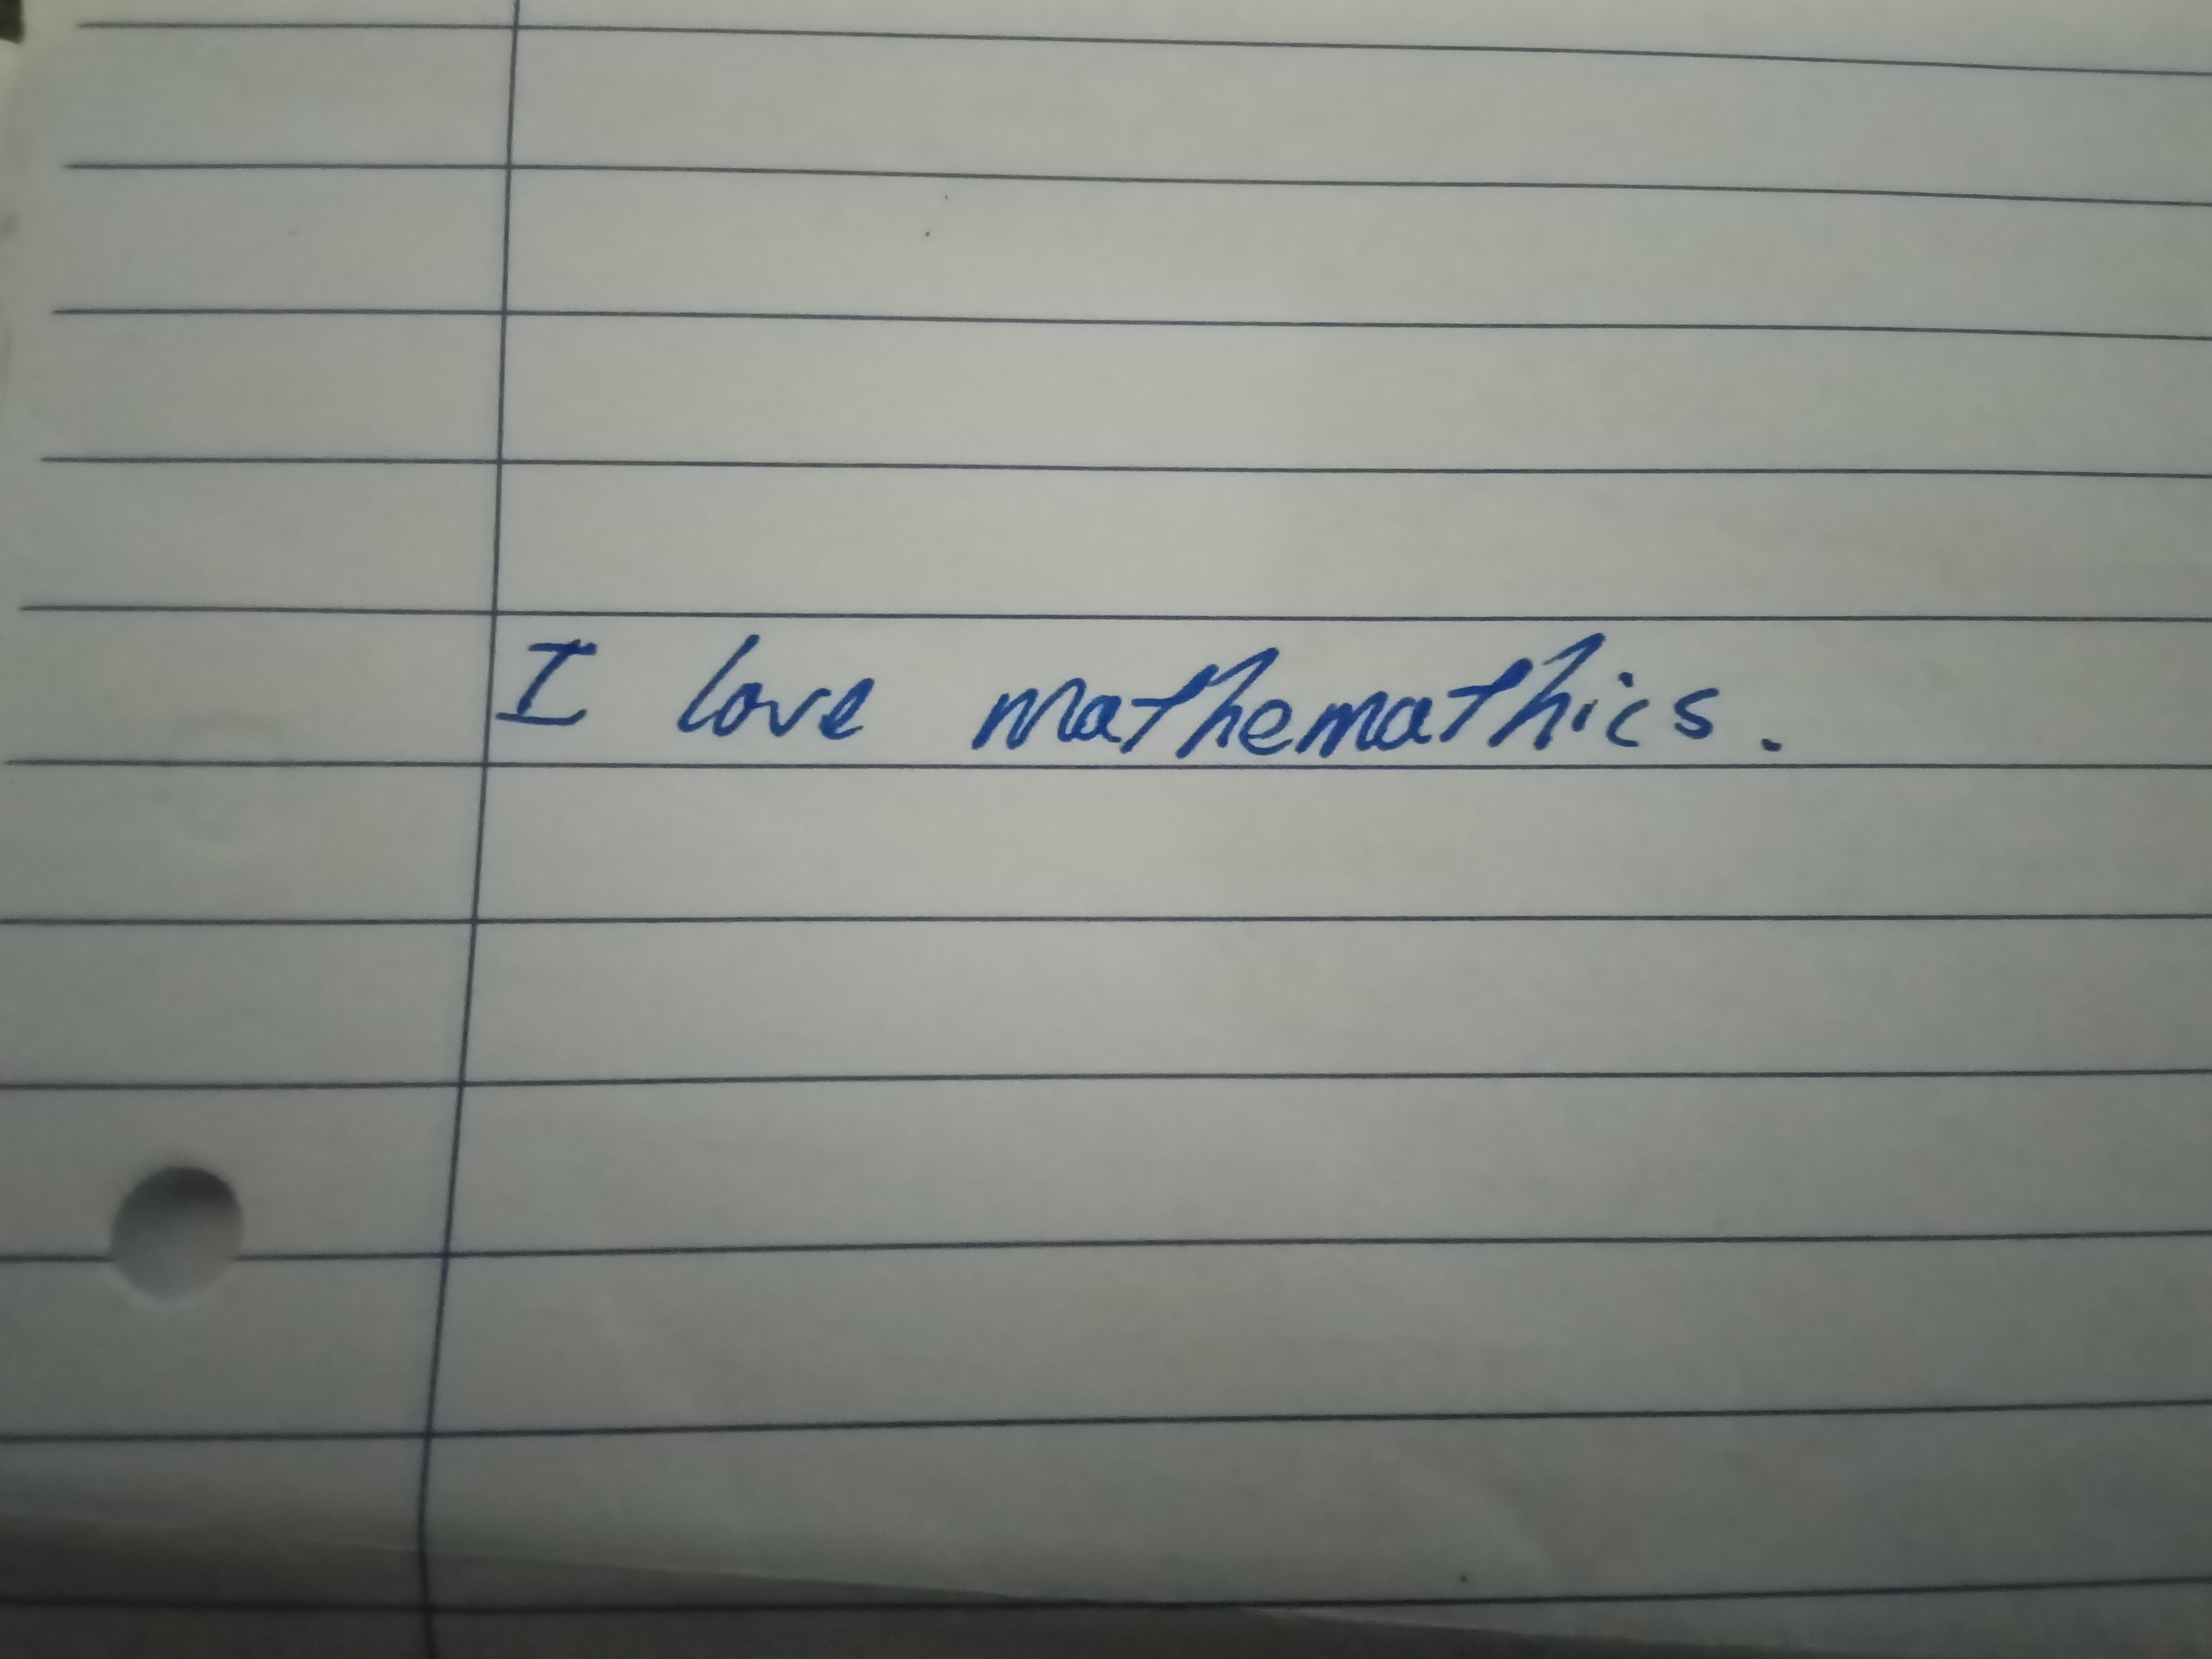 I love mathemathics.